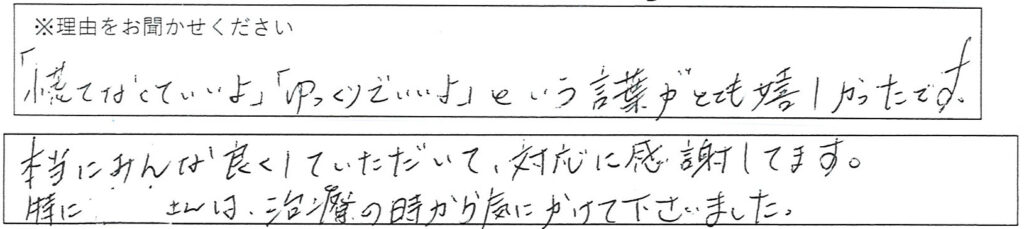 ※理由をお聞かせください
「慌てなくていいよ」「ゆっくりでいいよ」という言葉がとても嬉しかったです。
本当にみんな良くしていただいて、対応に感謝してます。
特に さんは、治療の時から気にかけて下さいました。